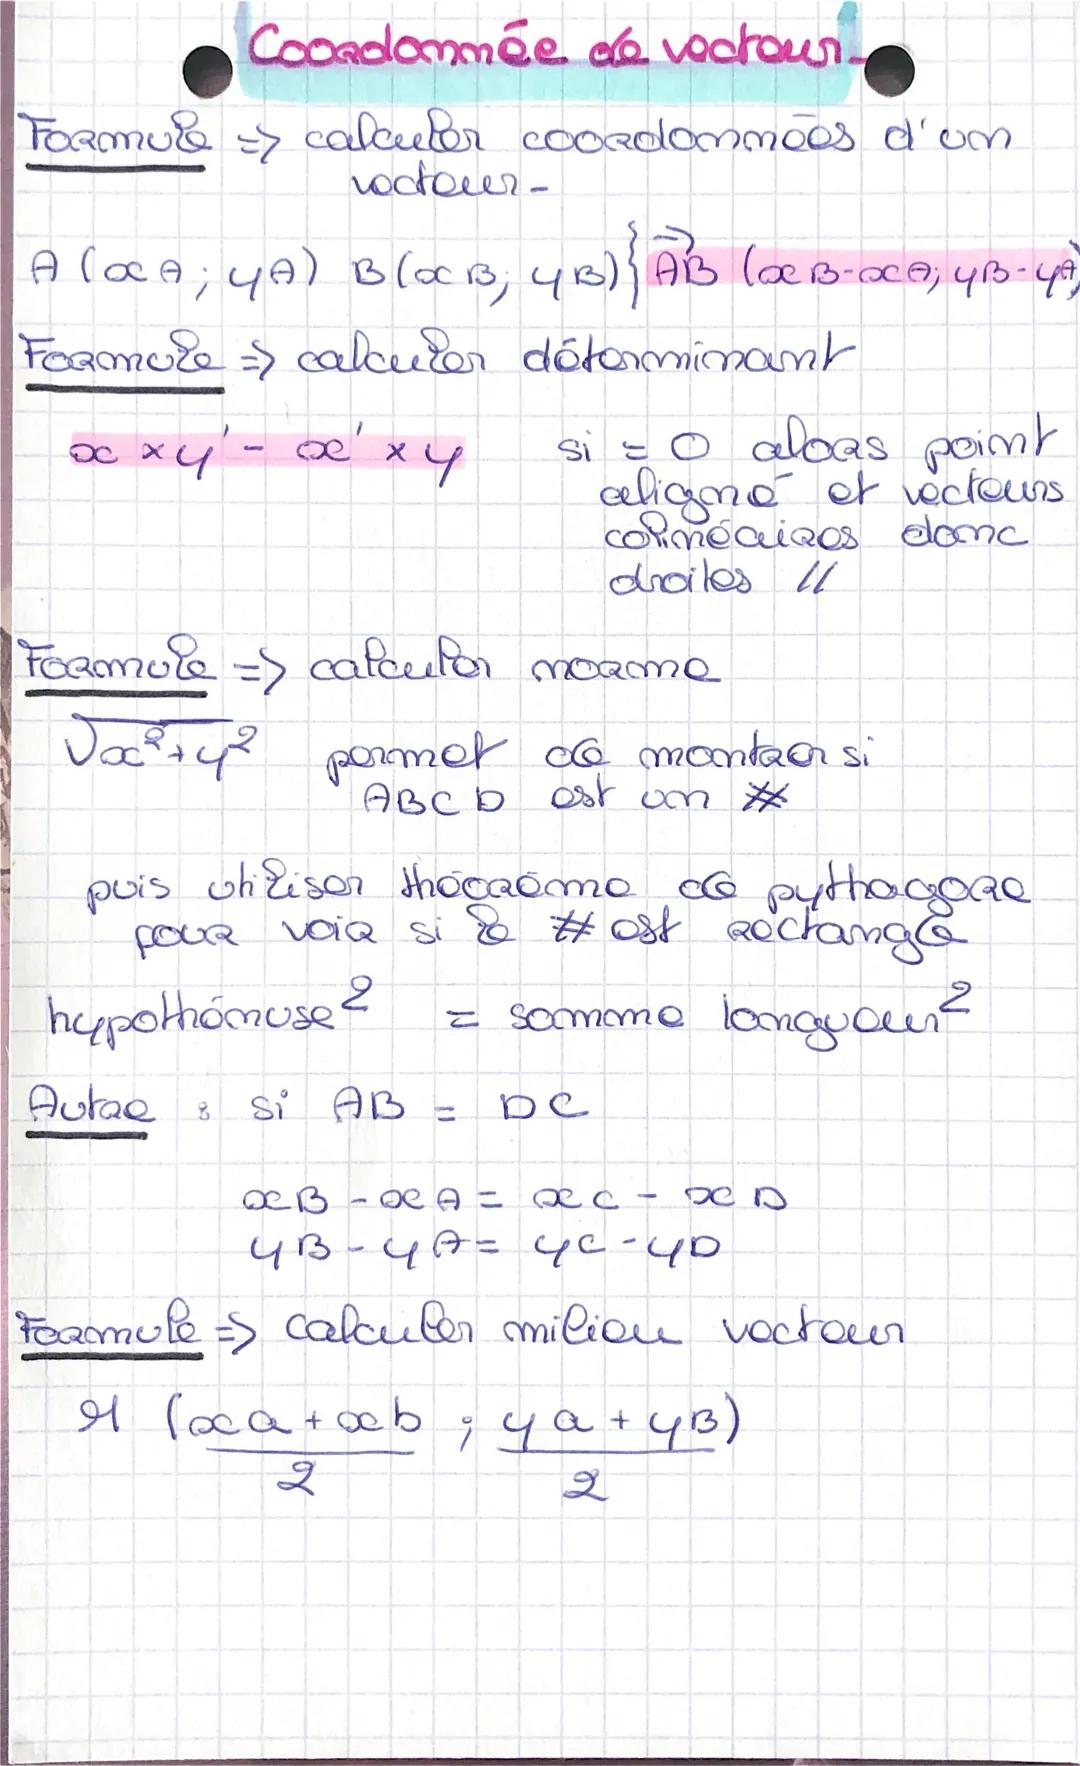 Coordonnée de vecteur-
Formule => calculer coordonnées d'un
vecteur-
A (xA ; yA) B (xB; yB) } AB (xB-xA; yB-yA)
Formule => calculer déterminant
x × y' - x' × y
si = 0 alors point
aligné et vecteurs
colinéaires donc
droites //
Formule => calculer norme
√x²+y² permet de montrer si
ABCD est un #
puis utiliser théorème de pythagore
pour voir si le # est rectangle
hypothénuse² = somme longueur²
Autre : si AB = DC
xB - xA = xC - xD
yB - yA = yC - yD
Formule => calculer milieu vecteur
M (xa + xb ; ya + yB)
2 2